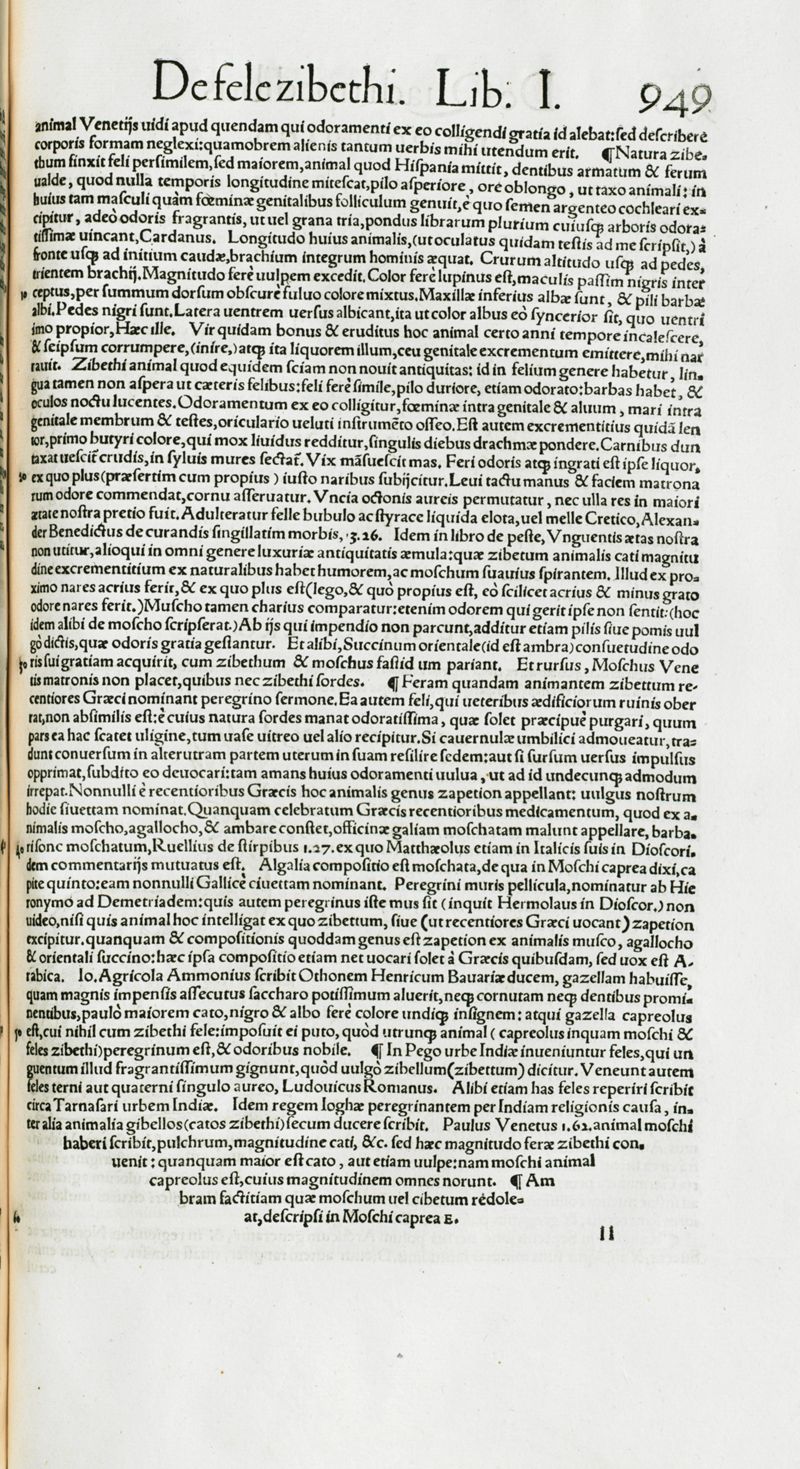 De fele zibethi. Lib. I. 949
animal Venetijs uidi apud quendam qui odoramenti ex eo colligendi gratia id alebat: sed describere
corporis formam neglexi: quamobrem alienis tantum uerbis mihi utendum erit. ¶ Natura zibe-
thum finxit feli persimilem, sed maiorem, animal quod Hispania mittit, dentibus armatum & ferum
ualde, quod nulla temporis longitudine mitescat, pilo asperiore, ore oblongo, ut taxo animali: in
huius tam masculi quàm fœminæ genitalibus folliculum genuit, è quo semen argenteo cochleari ex-
cipitur, adeo odoris fragrantis, ut uel grana tria, pondus librarum plurium cuiusq; arboris odora-
tissimæ uincant, Cardanus. Longitudo huius animalis, (ut oculatus quidam testis ad me scripsit,) à
fronte usq; ad initium caudæ, brachium integrum hominis æquat. Crurum altitudo usq; ad pedes,
trientem brachij. Magnitudo ferè uulpem excedit. Color ferè lupinus est, maculis passim nigris inter
10 ceptus, per summum dorsum obscurè fuluo colore mixtus. Maxillæ inferius albæ sunt, & pili barbæ
albi. Pedes nigri sunt. Latera uentrem uersus albicant, ita ut color albus eò syncerior sit, quo uentri
imo propior, Hæc ille. Vir quidam bonus & eruditus hoc animal certo anni tempore incalescere,
& seipsum corrumpere, (inire,) atq; ita liquorem illum, ceu genitale excrementum emittere, mihi nar
rauit. Zibethi animal quod equidem sciam non nouit antiquitas: id in felium genere habetur, lin-
gua tamen non aspera ut cæteris felibus: feli ferè simile, pilo duriore, etiam odorato: barbas habet, &
oculos noctu lucentes. Odoramentum ex eo colligitur, fœminæ intra genitale & aluum, mari intra
genitale membrum & testes, oriculario ueluti instrumẽto osseo. Est autem excrementitius quidã len
tor, primo butyri colore, qui mox liuidus redditur, singulis diebus drachmæ pondere. Carnibus dun
taxat uescit̃ crudis, in syluis mures sectat̃. Vix mãsuescit mas. Feri odoris atq; ingrati est ipse liquor,
20 ex quo plus (præsertim cum propius) iusto naribus subijcitur. Leui tactu manus & faciem matrona
rum odore commendat, cornu asseruatur. Vncia octonis aureis permutatur, nec ulla res in maiori
ætate nostra pretio fuit. Adulteratur felle bubulo ac styrace liquida elota, uel melle Cretico, Alexan-
der Benedictus de curandis singillatim morbis, 3.26. Idem in libro de peste, Vnguentis ætas nostra
non utitur, alioqui in omni genere luxuriæ antiquitatis æmula: quæ zibetum animalis cati magnitu
dine excrementitium ex naturalibus habet humorem, ac moschum suauius spirantem. Illud ex pro-
ximo nares acrius ferit, & ex quo plus est (lego, & quò propius est, eò scilicet acrius & minus grato
odore nares ferit.) Muscho tamen charius comparatur: etenim odorem qui gerit ipse non sentit: (hoc
idem alibi de moscho scripserat.) Ab ijs qui impendio non parcunt, additur etiam pilis siue pomis uul
gò dictis, quæ odoris gratia gestantur. Et alibi, Succinum orientale (id est ambra) consuetudine odo
30 ris sui gratiam acquirit, cum zibethum & moschus fastid um pariant. Et rursus, Moschus Vene
tis matronis non placet, quibus nec zibethi sordes. ¶ Feram quandam animantem zibettum re-
centiores Græci nominant peregrino sermone. Ea autem feli, qui ueteribus ædificiorum ruinis ober
rat, non absimilis est: è cuius natura sordes manat odoratissima, quæ solet præcipuè purgari, quum
pars ea hac scatet uligine, tum uase uitreo uel alio recipitur. Si cauernulæ umbilici admoueatur, tra-
dunt conuersum in alterutram partem uterum in suam resilire sedem: aut si sursum uersus impulsus
opprimat, subdito eo deuocari: tam amans huius odoramenti uulua, ut ad id undecunq; admodum
irrepat. Nonnulli è recentioribus Græcis hoc animalis genus zapetion appellant: uulgus nostrum
hodie siuettam nominat. Quanquam celebratum Græcis recentioribus medicamentum, quod ex a-
nimalis moscho, agallocho, & ambare constet, officinæ galiam moschatam malunt appellare, barba-
40 risono moschatum, Ruellius de stirpibus 1.27. ex quo Matthæolus etiam in Italicis suis in Dioscori-
dem commentarijs mutuatus est. Algalia compositio est moschata, de qua in Moschi caprea dixi, ca
pite quinto: eam nonnulli Gallicè ciuettam nominant. Peregrini muris pellicula, nominatur ab Hie
ronymo ad Demetriadem: quis autem peregrinus iste mus sit (inquit Hermolaus in Dioscor.) non
uideo, nisi quis animal hoc intelligat ex quo zibettum, siue (ut recentiores Græci uocant) zapetion
excipitur. quanquam & compositionis quoddam genus est zapetion ex animalis musco, agallocho
& orientali succino: hæc ipsa compositio etiam net uocari solet à Græcis quibusdam, sed uox est A-
rabica. Io. Agricola Ammonius scribit Othonem Henricum Bauariæ ducem, gazellam habuisse,
quam magnis impensis assecutus saccharo potissimum aluerit, neq; cornutam neq; dentibus promi-
nentibus, paulò maiorem cato, nigro & albo ferè colore undiq; insignem: atqui gazella capreolus
50 est, cui nihil cum zibethi fele: imposuit ei puto, quòd utrunq; animal (capreolus inquam moschi &
feles zibethi) peregrinum est, & odoribus nobile. ¶ In Pego urbe Indiæ inueniuntur feles, qui un
guentum illud fragrantissimum gignunt, quòd uulgò zibellum (zibettum) dicitur. Veneunt autem
feles terni aut quaterni singulo aureo, Ludouicus Romanus. Alibi etiam has feles reperiri scribit
circa Tarnasari urbem Indiæ. Idem regem Ioghæ peregrinantem per Indiam religionis causa, in-
ter alia animalia gibellos (catos zibethi) secum ducere scribit. Paulus Venetus 1.62. animal moschi
haberi scribit, pulchrum, magnitudine cati, &c. sed hæc magnitudo feræ zibethi con-
uenit: quanquam maior est cato, aut etiam uulpe: nam moschi animal
capreolus est, cuius magnitudinem omnes norunt. ¶ Am
bram factitiam quæ moschum uel cibetum rèdole-
at, descripsi in Moschi caprea E.
ll